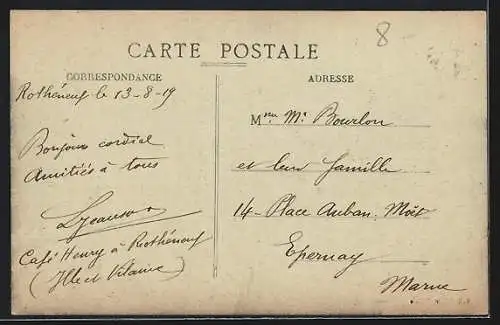 8
CARTE POSTALE
CORRESPONDANCE
ADRESSE
Rothéneuf le 13-8-19
Bonjour cordial
Amitiés à tous
Café Henry à Rothéneuf
(Ille et Vilaine)
Mme Mr Bourlon
et leur famille
14 - Place Auban. Moët
Epernay
Marne